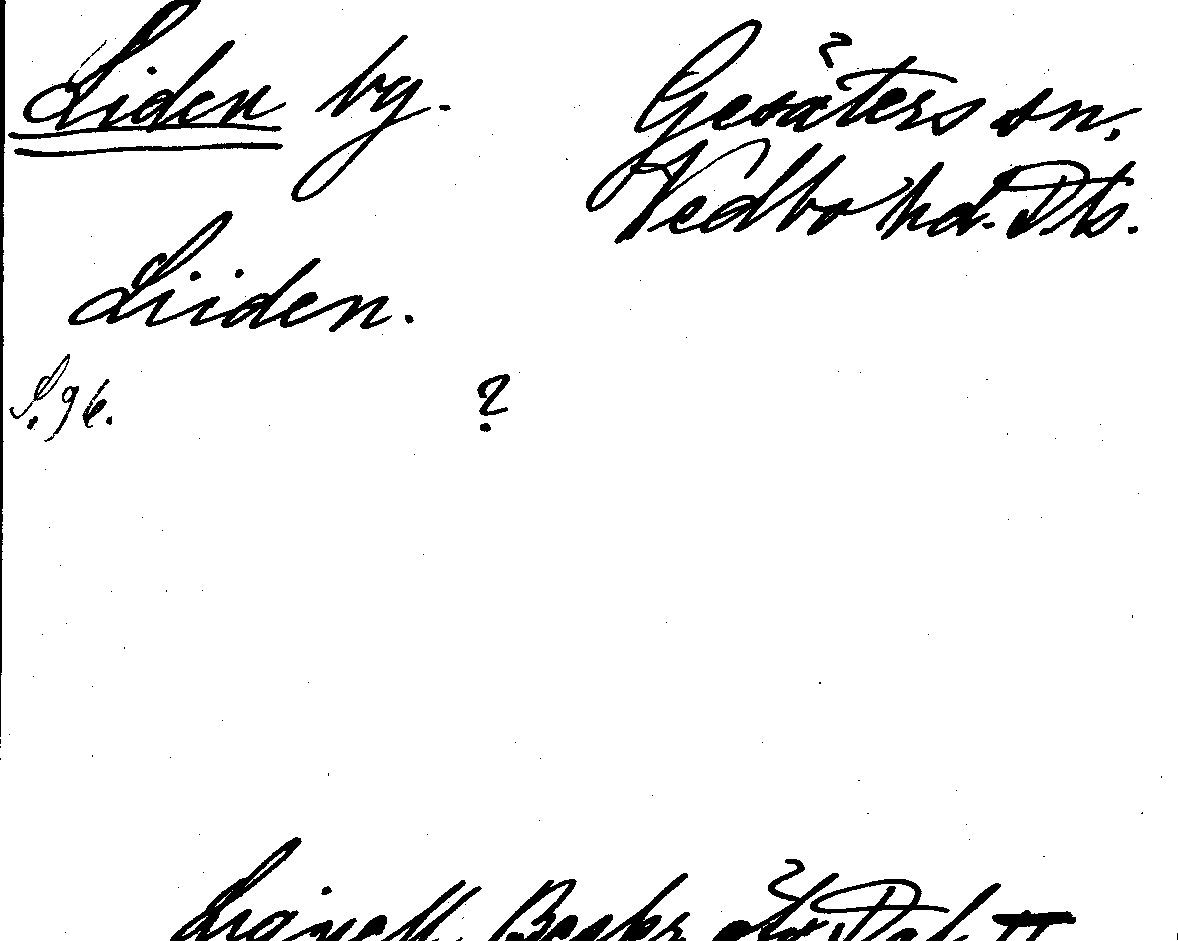 Liden by.
Gesäters sn.
Vedbo hd. Dls.
Liiden.
S. 96. ?
Lignell Beskr. öfv. Dal II